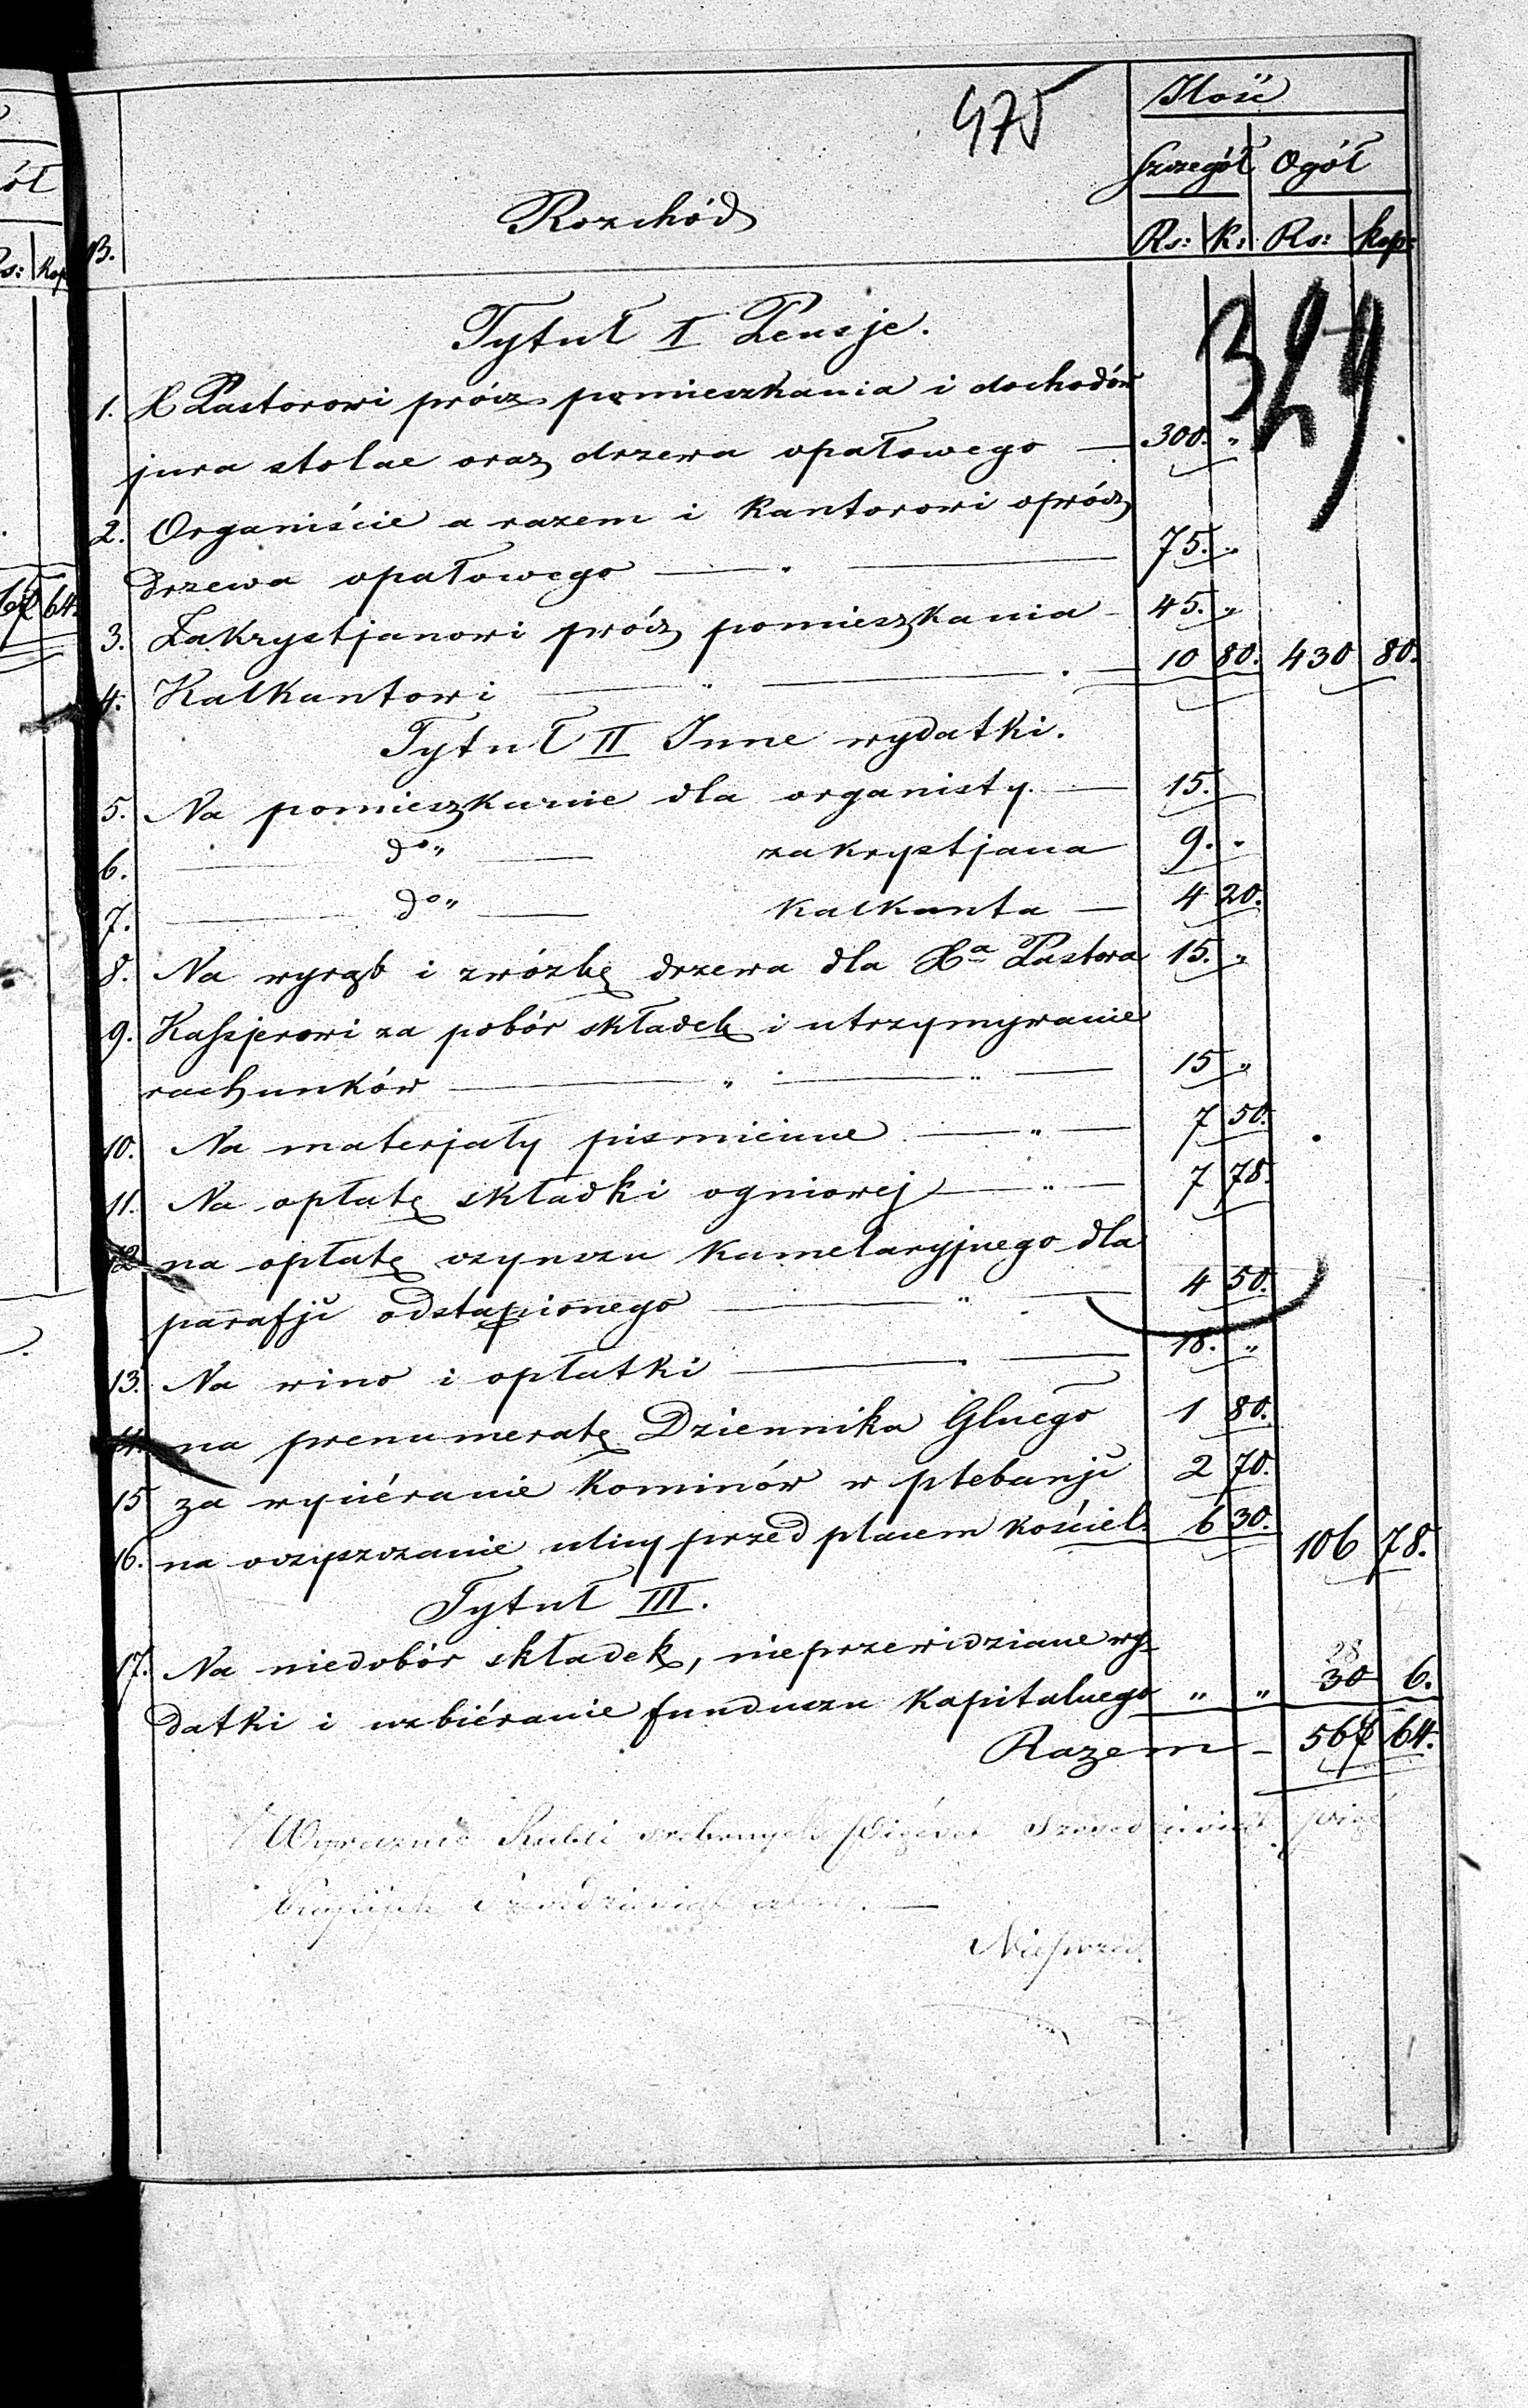 475
Ilość
Szczegół Ogół
Rozchód
B. Rs: k: Rs: kop:
329
Tytuł I Pensje.
1. X Pastorowi prócz pomieszkania i dochodów
jura stolae oraz drzewa opałowego — 300. „
2. Organiście a razem i Kantorowi oprócz
drzewa opałowego — „ — 75. „
3. Zakrystjanowi prócz pomieszkania — 45. „
4. Kalkantowi — „ — 10 80. 430 80.
Tytuł II Inne wydatki.
5. Na pomieszkanie dla organisty — 15.
6. — do „ — zakrystjana 9. „
7. — do „ — Kalkanta — 4 20.
8. Na wyrąb i zwózkę drzewa dla Xa Pastora 15. „
9. Kassjerowi za pobór składek i utrzymywanie
rachunków — „ — „ — 15 „
10. Na materjały piśmienne — „ — 7 50.
11. Na opłatę składki ogniowej — „ — 7 78.
12 na opłatę czynszu Kamelaryjnego dla
parafji odstąpionego — „ — 4 50.
13. Na wino i opłatki — „ — 18. „
14. na prenumeratę Dziennika Głnego 1 80.
15 za wyciéranie Kominów w plebanji 2 70.
16. na oczyszczanie ulicy przed placem Kościel. 6 30. 106 78.
Tytuł III.
17. Na niedobór składek, nieprzewidziane wy-
28
datki i uzbiéranie funduszu Kapitalnego „ „ 30 6.
Razem — 567 64.
Wyraźnie Rubli srebrnych Pięćset
ół
Rs: kop
64